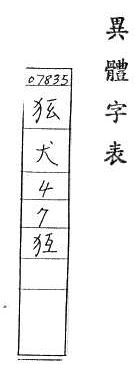 異體字表
07835
犬
4
7